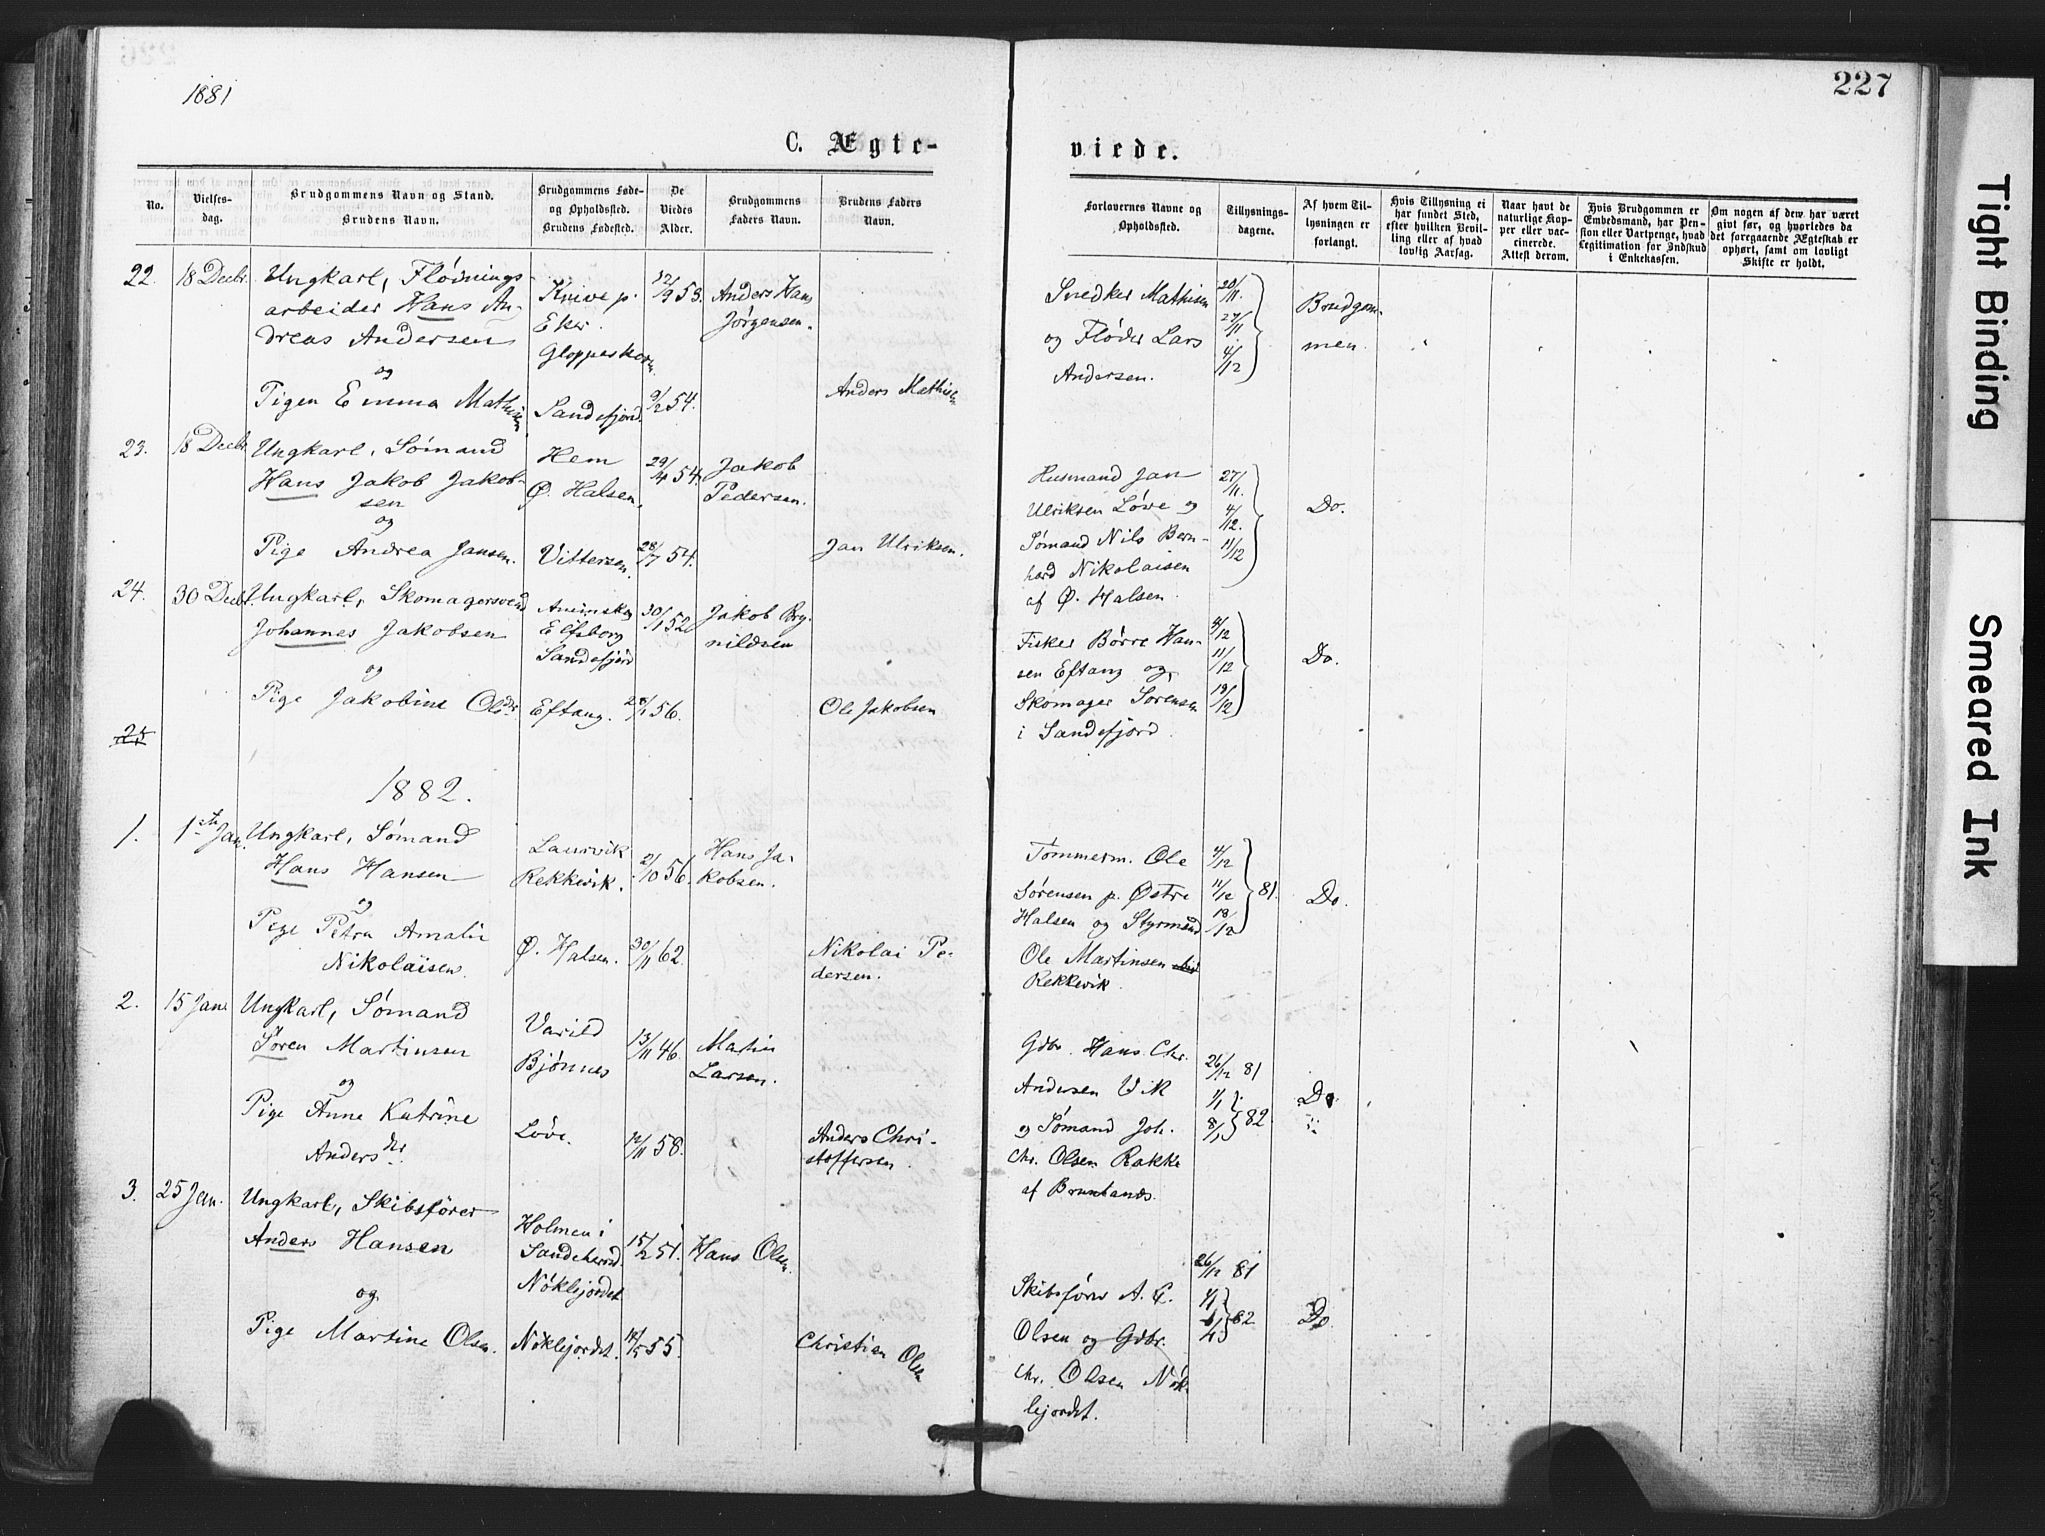 1881
227
C. Ægte-
viede.
No.
Vielses-
dag.
Brudgommens Navn og Stand.
Brudens Navn.
Brudgommens Føde-
og Opholdssted.
Brudens Fødested.
De
Viedes
Alder.
Brudgommens
Faders Navn.
Brudens Faders
Navn.
Forlovernes Navne og
Opholdssted.
Tillysnings-
dagene.
Af hvem Til-
lysningen er
forlangt.
Hvis Tillysning ei
har fundet Sted,
efter hvilken Bevil-
ling eller af hvad
lovlig Aarsag.
Naar havt de
naturlige Kop-
per eller vac-
cinerede.
Attest derom.
Hvis Brudgommen er
Embedsmand, har Pen-
sion eller Vartpenge, hvad
Legitimation for Indskud
i Enkekassen.
Om nogen af dem har været
givt før, og hvorledes da
det foregaaende Ægteskab er
ophørt, samt om lovligt
Skifte er holdt.
22.
18 Decbr.
Ungkarl, Fløtnings-
arbeider Hans An-
dreas Andersen
og
Pigen Emma Mathisen
Eker.
Sandefjord.
12/9 53.
9/2 54.
Anders Hans
Jørgensen.
Anders Mathisen
Snedker Mathisen
og Fløder Lars
Andersen.
20/11.
27/11
4/12
Brudgom-
men.
23.
18 Decbr.
Ungkarl, Sømand
Hans Jakob Jakob-
sen
og
Pige Andrea Jansen.
Hem
Ø. Halsen.
Vittersen.
29/4 54.
28/7 54.
Jakob
Pedersen.
Jan Ulriksen.
Husmand Jan
Ulriksen Løve og
Sømand Nils Bern-
hard Nikolaisen
af Ø. Halsen.
27/11.
4/12.
11/12
Do.
24.
30 Decbr.
Ungkarl, Skomagersvend
Johannes Jakobsen
og
Pige Jakobine Olsdr
Elfsborg
Sandefjord
Eftang.
30/1 52
28/1 56.
Jakob Bry-
nildsen
Ole Jakobsen
Fisker Børre Han-
sen Eftang og
Skomager Sørensen
i Sandefjord.
4/12
11/12
18/12
Do.
25
1882.
1.
1ste Jan.
Ungkarl, Sømand
Hans Hansen
og
Pige Petra Amalie
Nikolaisen.
Laurvik
Rekkevik.
Ø. Halsen.
21/10 56.
30/11 62.
Hans Ja-
kobsen.
Nikolai Pe-
dersen.
Tømmerm. Ole
Sørensen p. Østre
Halsen og Styrmand
Ole Martinsen
Rekkevik.
4/12
11/12
18/12
81.
Do.
2.
15 Jan.
Ungkarl, Sømand
Søren Martinsen
og
Pige Anne Katrine
Andersdr.
Varild
Bjønnes
Løve.
13/11 46.
12/11 58.
Martin
Larsen.
Anders Chri-
stoffersen.
Gdbr. Hans Chr.
Andersen Vik
og Sømand Joh.
Chr. Olsen Rakke
af Brunlanes.
26/12 81
1/1
8/1
82
Do
3.
25 Jan.
Ungkarl, Skibsfører
Anders Hansen
og
Pige Martine Olsen.
Holmen i
Sandeherred.
Nøklejordet
Nøklejordet.
15/2 51.
14/5 55.
Hans Olsen.
Christian Olsen
Skibsfører A. C.
Olsen og Gdbr.
Chr. Olsen Nøk-
lejordet.
26/12 81
1/1
82
Do
Tight Binding
Smeared Ink